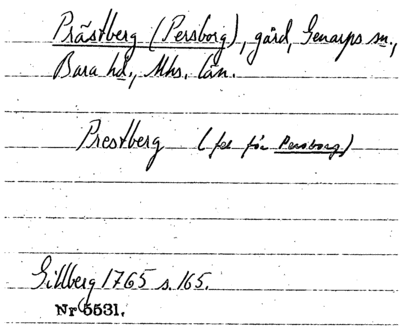 Prästberg (Persborg), gård, Genarps sn,
Bara hd., Mhs. län.
Prestberg (fel för Persborg)
Gillberg 1765 s. 165.
Nr 5531.